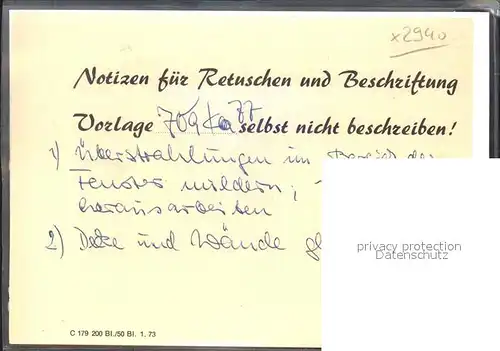 x2940
Notizen für Retuschen und Beschriftung
Vorlage selbst nicht beschreiben!
1) Überstrahlungen im Bereich der
Fenster mildern;
herausarbeiten
2) Decke und Wände
privacy protection
Datenschutz
C 179 200 Bl./50 Bl. 1. 73